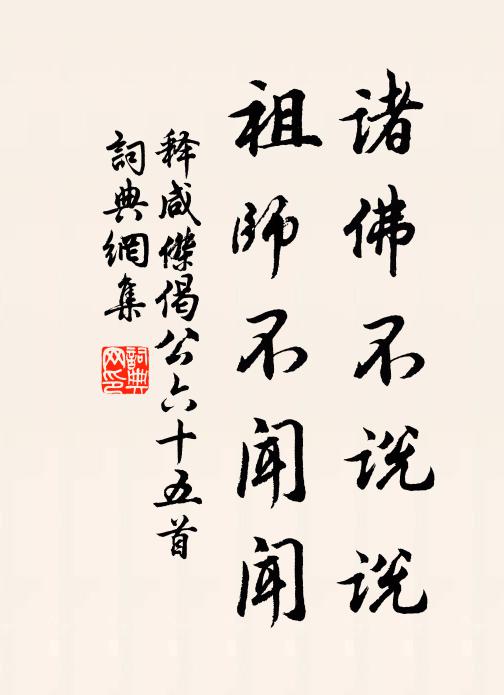 诸佛不说说
祖师不闻闻
释咸傑偈公六十五首
詞典網集
詞典网印